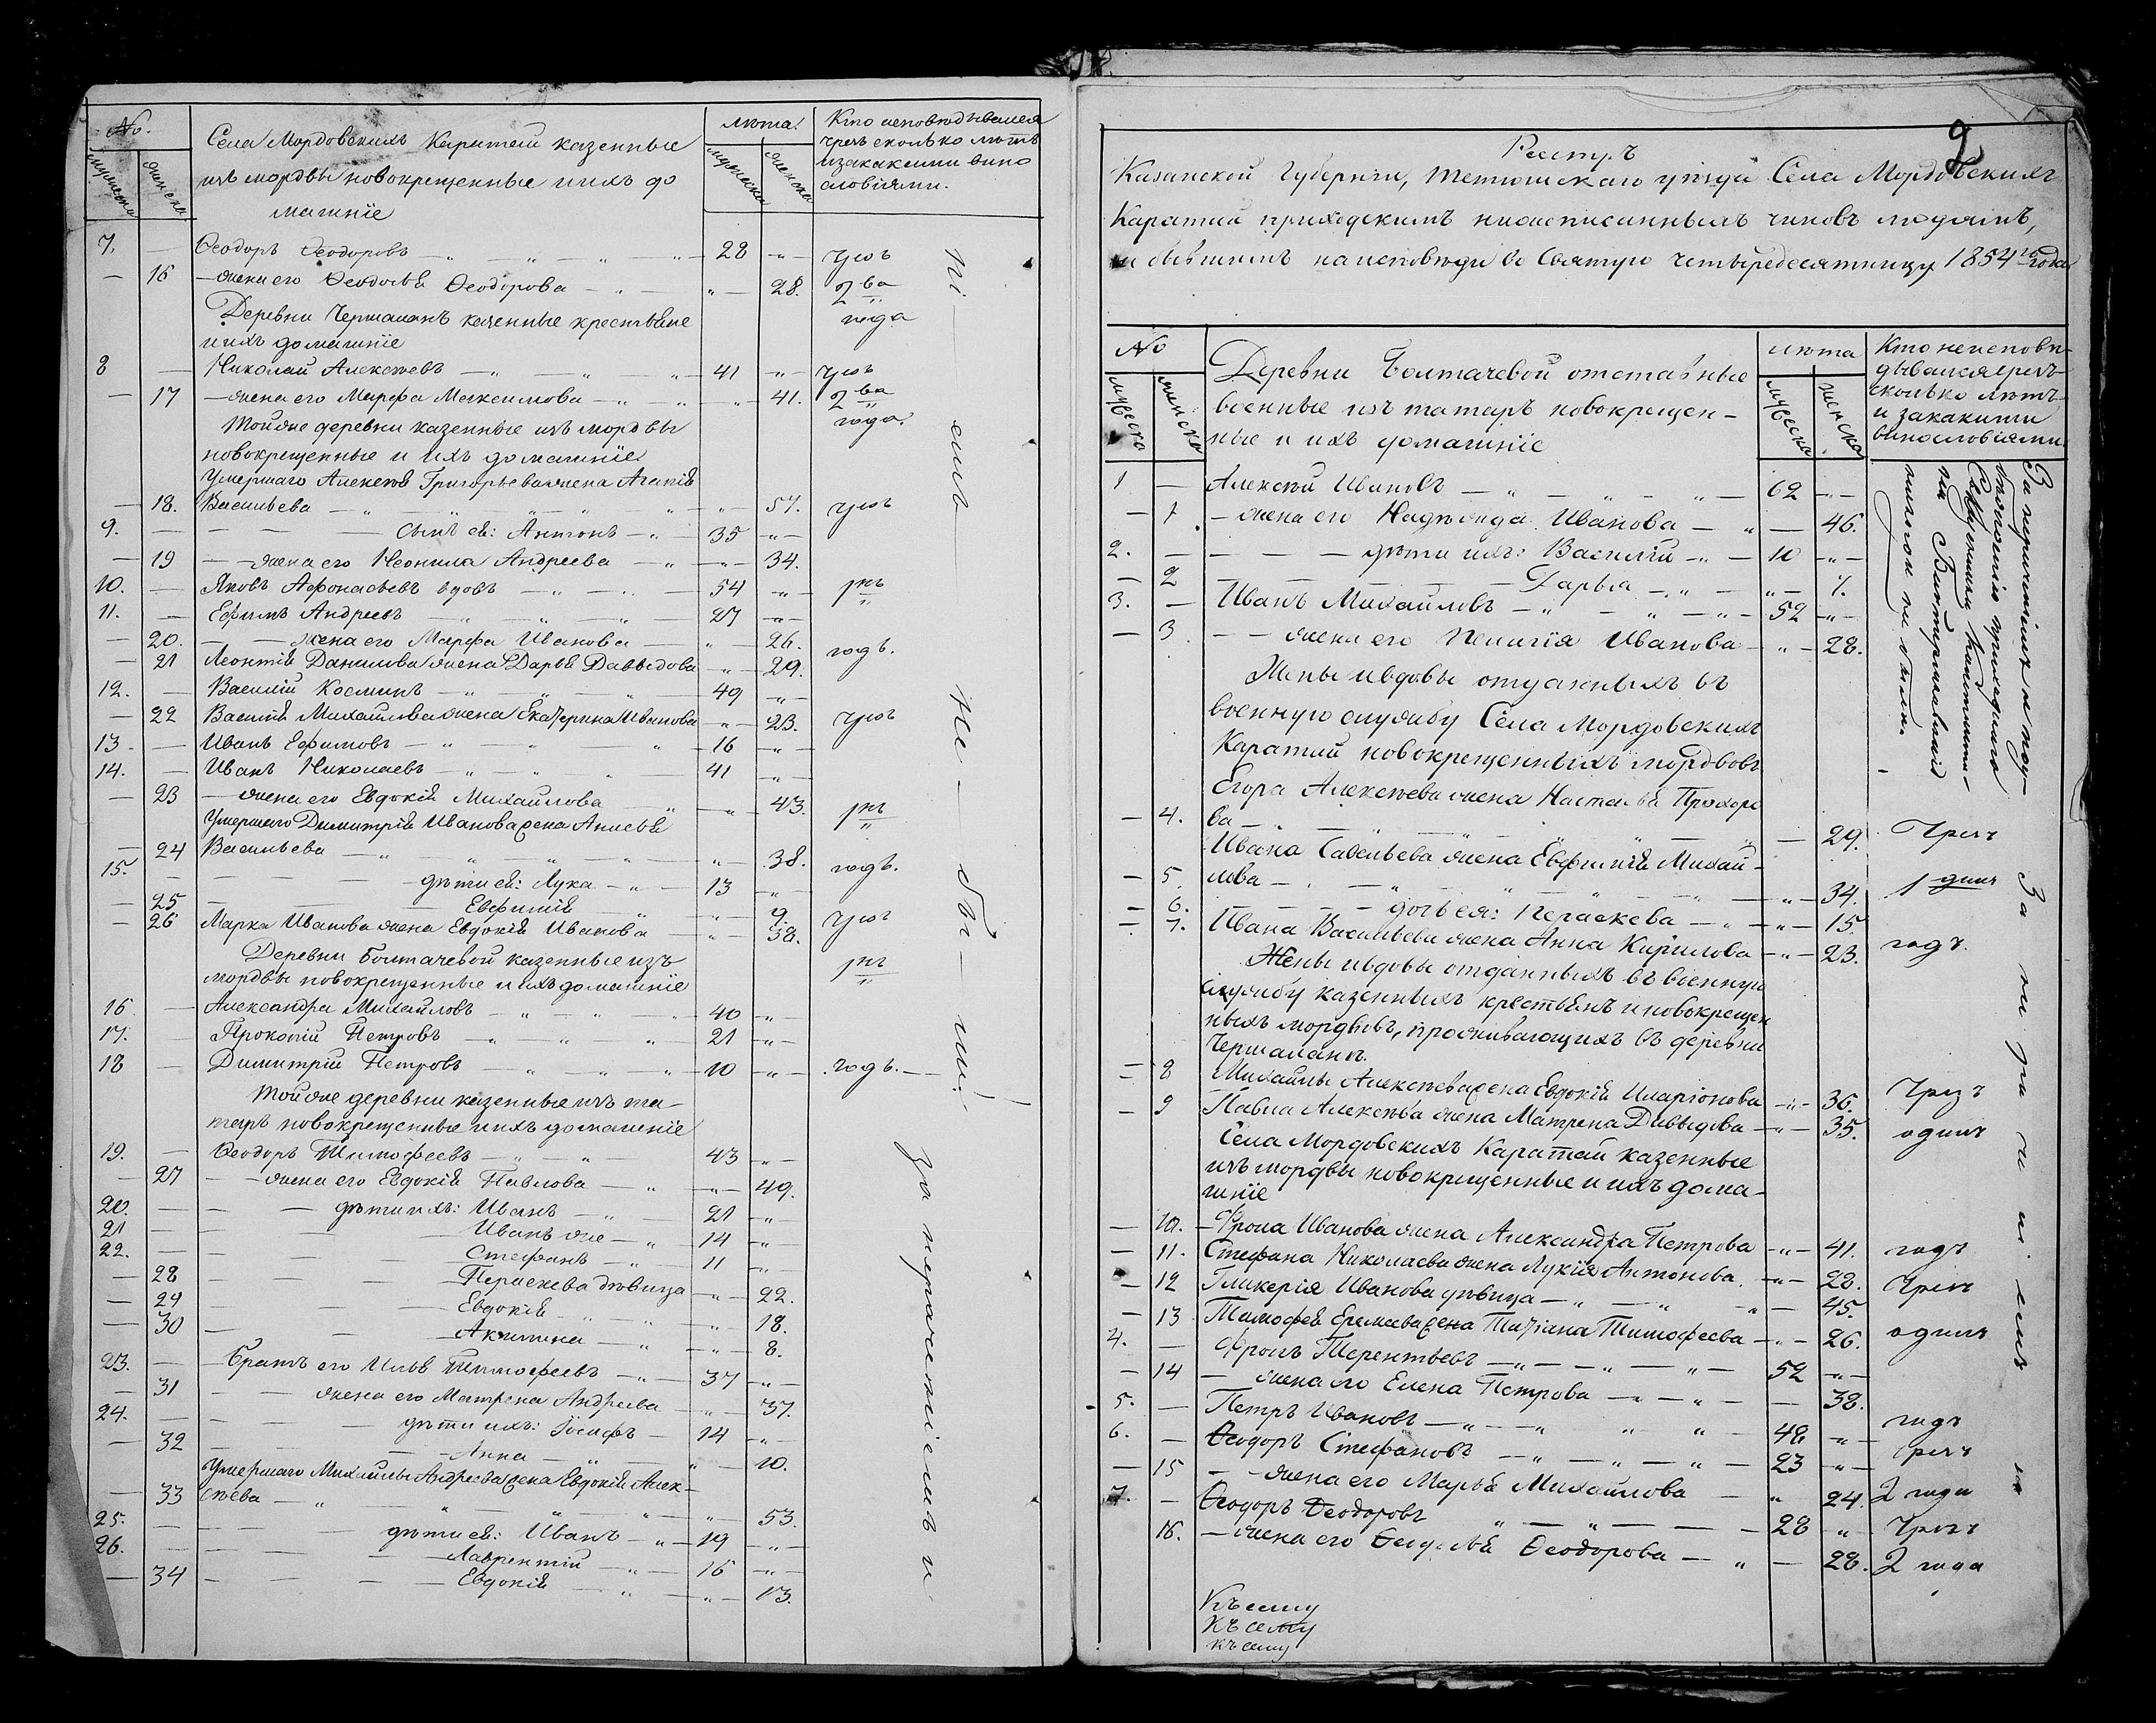 No. Села Мордовскихъ Каратай казенные лѣта. Кто исповѣдывался
мужеска женска изъ мордвы новокрещенные и ихъ до мужеска женска чрезъ сколько лѣтъ
машніе и за какими вино
словіями.
7. — Ѳеодоръ Ѳеодоровъ — „ — „ — „ — 28 — „ — чрезъ
— 16 — жена его Ѳеодосья Ѳеодорова — „ — „ — 28. 2ва
Деревни Чершаланъ казенные крестьяне года
и ихъ домашніе
8 — Николай Алексѣевъ — „ — „ — 41 — „ — чрезъ
— 17 — жена его Марфа Максимова — „ — „ — 41. 2ва
Той же деревни казенные изъ мордвы года.
новокрещенные и ихъ домашніе
Умершаго Алексѣя Григорьева жена Агапія
— 18. Васильева — „ — 57. чрезъ
9. — сынъ ея: Антонъ — „ — 35 — „ —
— 19 — жена его Неонила Андреева — „ — 34.
10. — Яковъ Афонасьевъ вдовъ — „ — 54 — „ —
11. — Ефимъ Андреевъ — „ — 27 — „ —
— 20. — жена его Марфа Иванова — „ — 26. годъ.
— 21 Леонтія Данилова жена Дарья Давыдова — „ — 29.
12. — Василій Косминъ — „ — 49 — „ —
— 22 Василія Михайлова жена Екатерина Иванова — „ — 23. чрезъ
13. — Иванъ Ефимовъ — „ — 16 — „ —
14. — Иванъ Николаевъ — „ — 41 — „ —
— 23 — жена его Евдокія Михайлова — „ — 43.
Умершаго Димитрія Иванова жена Анисья
— 24 Васильева — „ — 38. годъ.
15. — дѣти ея: Лука — „ — 13 — „ —
— 25 — Евфимія — „ — 9.
— 26 Марка Иванова жена Евдокія Иванова — „ — 38. чрезъ
Деревни Болтачевой казенные изъ
мордвы новокрещенные и ихъ домашніе
16 — Александра Михайловъ — „ — 40 — „ —
17. — Прокопій Петровъ — „ — 21 — „ —
18 — Димитрій Петровъ — „ — 10 — „ — годъ. —
Той же деревни казенные изъ та-
таръ новокрещенные и ихъ домашніе
19. — Ѳеодоръ Тимофеевъ — „ — 43 — „ —
— 27 — жена его Евдокія Павлова — „ — 49.
20. — дѣти ихъ: Иванъ — „ — 21 — „ —
21 — Иванъ же — „ — 14 — „ —
22. — Стефанъ — „ — 11 — „ —
— 28 — Параскева дѣвица — „ — 22.
— 29 — Евдокія — „ — 18.
— 30 — Акилина — „ — 8.
23. — Братъ его Илья Тимофеевъ — „ — 37 — „ —
— 31 — жена его Матрена Андреева — „ — 37.
24. — дѣти ихъ: Іосифъ — 14 — „ —
— 32 — Анна — „ — 10.
Умершаго Михайлы Андреева жена Евдокія Алек-
— 33 сѣева — „ — 53.
25. — дѣти ея: Иванъ — „ — 19 — „ —
26. — Лаврентій — „ — 16 — „ —
— 34 — Евдокія — „ — 13.
не — бы — ли. за нерачетніемъ и
2
Реестръ
Казанской Губерніи, Тетюшскаго уѣзда Села Мордовскихъ
Каратай приходскимъ нижеписанныхъ чиновъ людямъ,
не бывшимъ на исповѣди во Святую четыредесятницу 1854го года
No Деревни Болтачевой отставные лѣта Кто неисповѣ-
мужеска женска военные изъ татаръ новокрещен- мужеска женска дывался чрезъ
ные и ихъ домашніе сколько лѣтъ
и за какими
винословіями
1 — Алексѣй Ивановъ — „ — „ — 62 — „ —
— 1. — жена его Надѣжда Иванова — „ — 46.
2. — дѣти ихъ: Василій — „ — 10 — „ —
— 2 — Дарья — „ — 7.
3. — Иванъ Михайловъ — „ — 52 — „ —
— 3. — жена его Пелагія Иванова — „ — 28.
Жены и вдовы отданныхъ въ
военную службу Села Мордовскихъ
Каратай новокрещенныхъ мордвовъ
Егора Алексѣева жена Настасья Прохоро
— 4. ва — „ — 29. Чрезъ
Ивана Савельева жена Евфимія Михай-
— 5. лова — „ — 34. 1 динъ
— 6. — дочь ея: Параскева — „ — 15.
— 7. Ивана Васильева жена Анна Кирилова — „ — 23. годъ.
Жены и вдовы отданныхъ въ военную
службу казенныхъ крестьянъ и новокрещен
ныхъ мордвовъ, проживающихъ въ деревни
Чершаланъ
— 8 Михайлы Алексѣева жена Евдокія Иларіонова — „ — 36. Чрезъ
— 9 Павла Алексѣева жена Матрена Давыдова — „ — 35. одинъ
Села Мордовскихъ Каратай казенные
изъ мордвы новокрещенные и ихъ дома-
шніе
— 10. — Фрола Иванова жена Александра Петрова — „ — 41. годъ
— 11. Стефана Николаева жена Лукія Антонова — „ — 22. Чрезъ
— 12 Гликерія Иванова дѣвица — „ — 45.
— 13 Тимофея Еремеева жена Татіана Тимофеева — „ — 26. одинъ
4. — Фролъ Терентьевъ — „ — „ — 52 — „ —
— 14 — жена его Елена Петрова — „ — 38.
5. — Петръ Ивановъ — „ — 48 — „ — годъ
6. — Ѳеодоръ Стефановъ — „ — 23 — „ — Чрезъ
— 15 — жена его Марья Михайлова — „ 24. 2 года
7. — Ѳеодоръ Ѳеодоровъ — „ — 28 — „ — Чрезъ
16. — жена его Ѳеодосья Ѳеодорова — „ — 28. 2 года
Къ сему
Къ сему
Къ сему